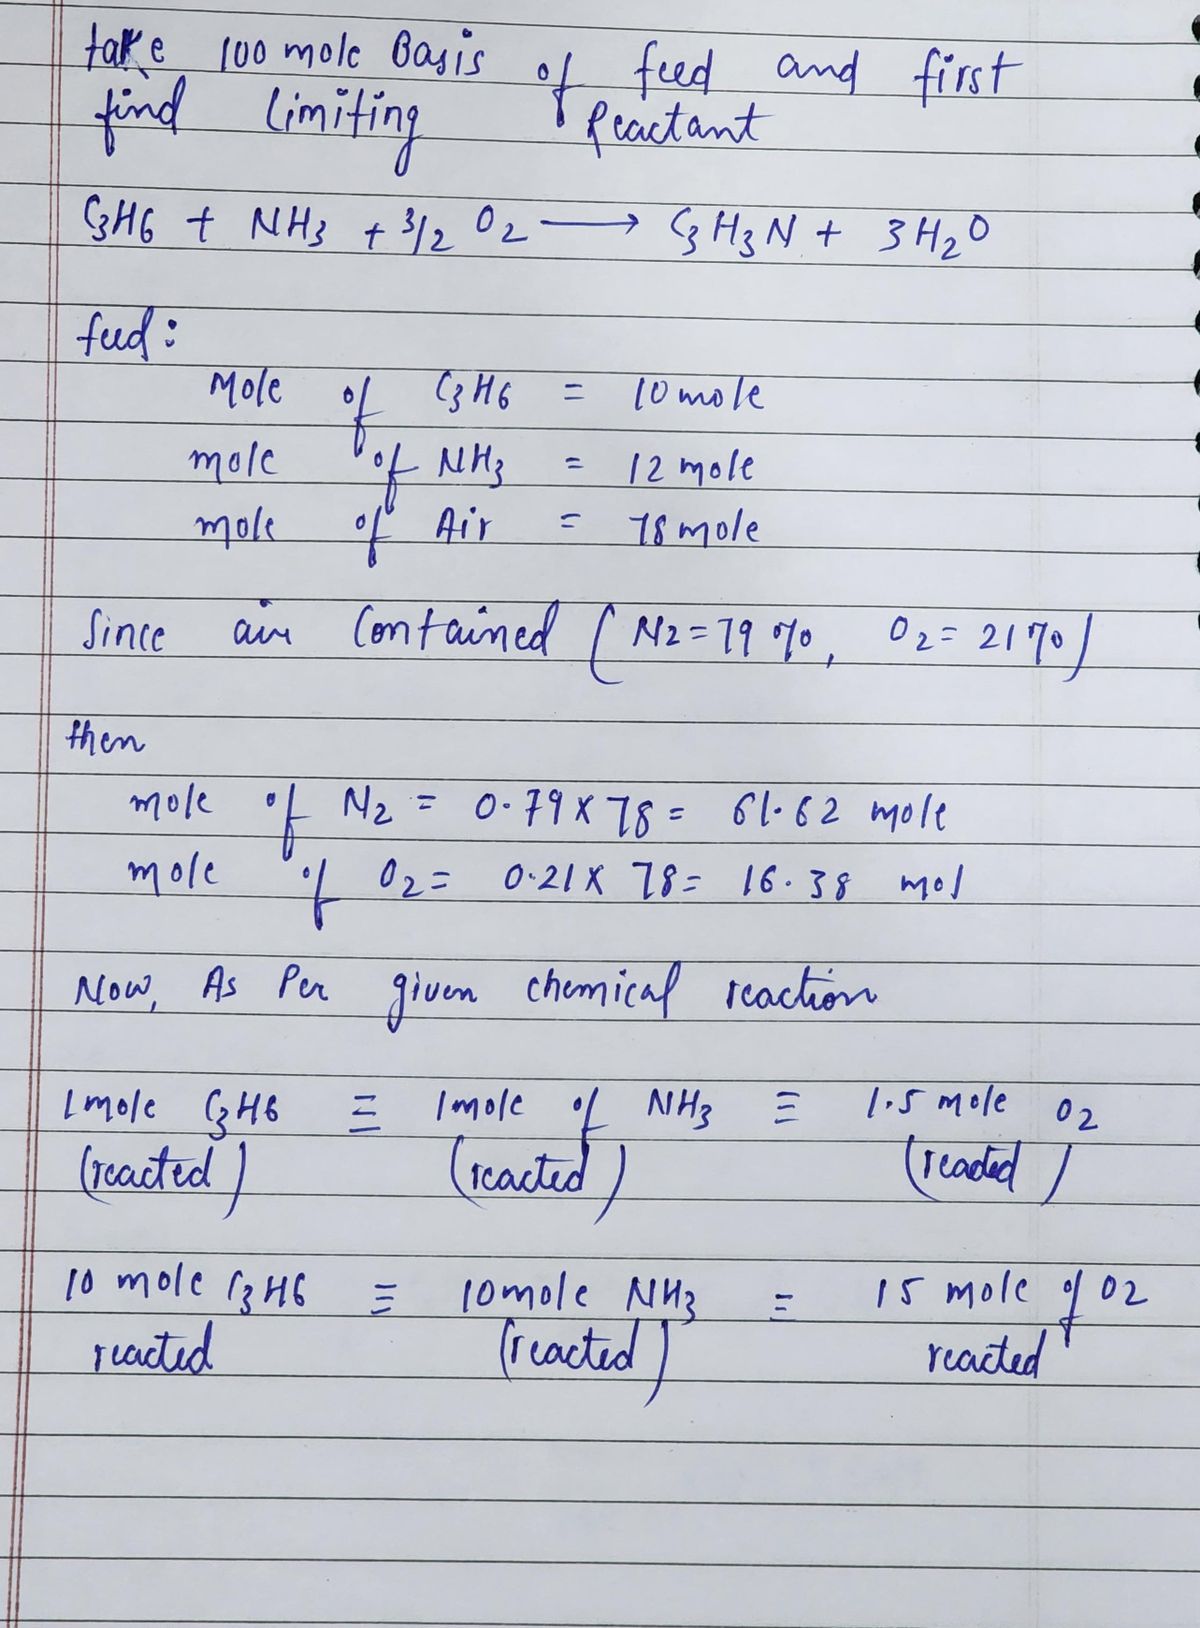 take 100 mole Basis of feed and first
find limiting Reactant
C3H6 + NH3 + 3/2 O2 → C3H3N + 3H2O
feed:
Mole of C3H6 = 10 mole
mole of NH3 = 12 mole
mole of Air = 78 mole
Since air Contained (N2=79%, O2=21%)
then
mole of N2 = 0.79 x 78 = 61.62 mole
mole of O2 = 0.21 x 78 = 16.38 mol
Now, As Per given chemical reaction
1 mole C3H6 ≡ 1 mole of NH3 ≡ 1.5 mole O2
(reacted) (reacted) (reacted)
10 mole C3H6 ≡ 10 mole NH3 ≡ 15 mole of O2
reacted (reacted) reacted